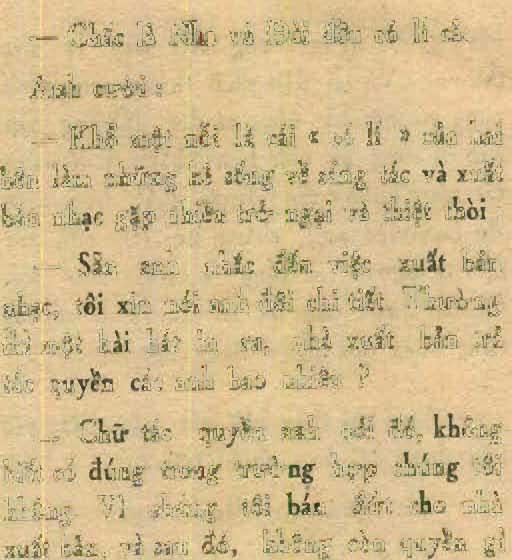 — Chắc là Nho và Đài đều có lí cả.
Anh cười :
— Khổ một nỗi là cái « có lí » của hai
bên làm những kẻ sống về sáng tác và xuất
bản nhạc gặp nhiều trở ngại và thiệt thòi
— Sẵn anh nhắc đến việc xuất bản
nhạc, tôi xin hỏi anh đôi chi tiết. Thường
thì một bài hát in ra, nhà xuất bản trả
tác quyền các anh bao nhiêu ?
— Chữ tác quyền anh nói đó, không
biết có đúng trong trường hợp chúng tôi
không. Vì chúng tôi bán đứt cho nhà
xuất bản, và sau đó, không còn quyền gì